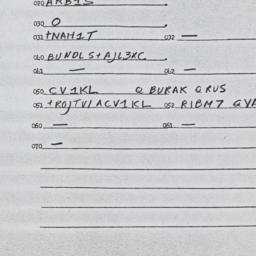 020 ARB1S
030 O
031 +NAH1T 032 —
040 BUNDLS+AJL3XC
041 — 042 —
050 CV1KL Q BURAK QRUS
051 +ROJTVLACV1KL 052 R1BM7 QYA
060 — 061 —
070 —